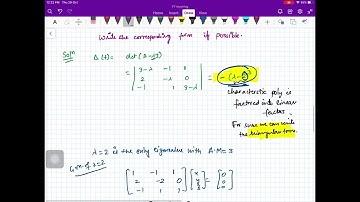 Write the corresponding form if possible.
Soln Δ(t) = det(A-λI)
= | 3-λ -1 1 | = -(λ-2)³
| 2 -λ 0 |
| -1 1 3-λ |
characteristic poly is
factored into linear
factor.
For sure we can write
the triangular form.
λ=2 is the only eigenvalue with A.M=3
G.M of λ=2
[ 1 -1 1 ] [ x ] = [ 0 ]
[ 2 -2 0 ] [ y ] [ 0 ]
[ -1 1 1 ] [ z ] [ 0 ]